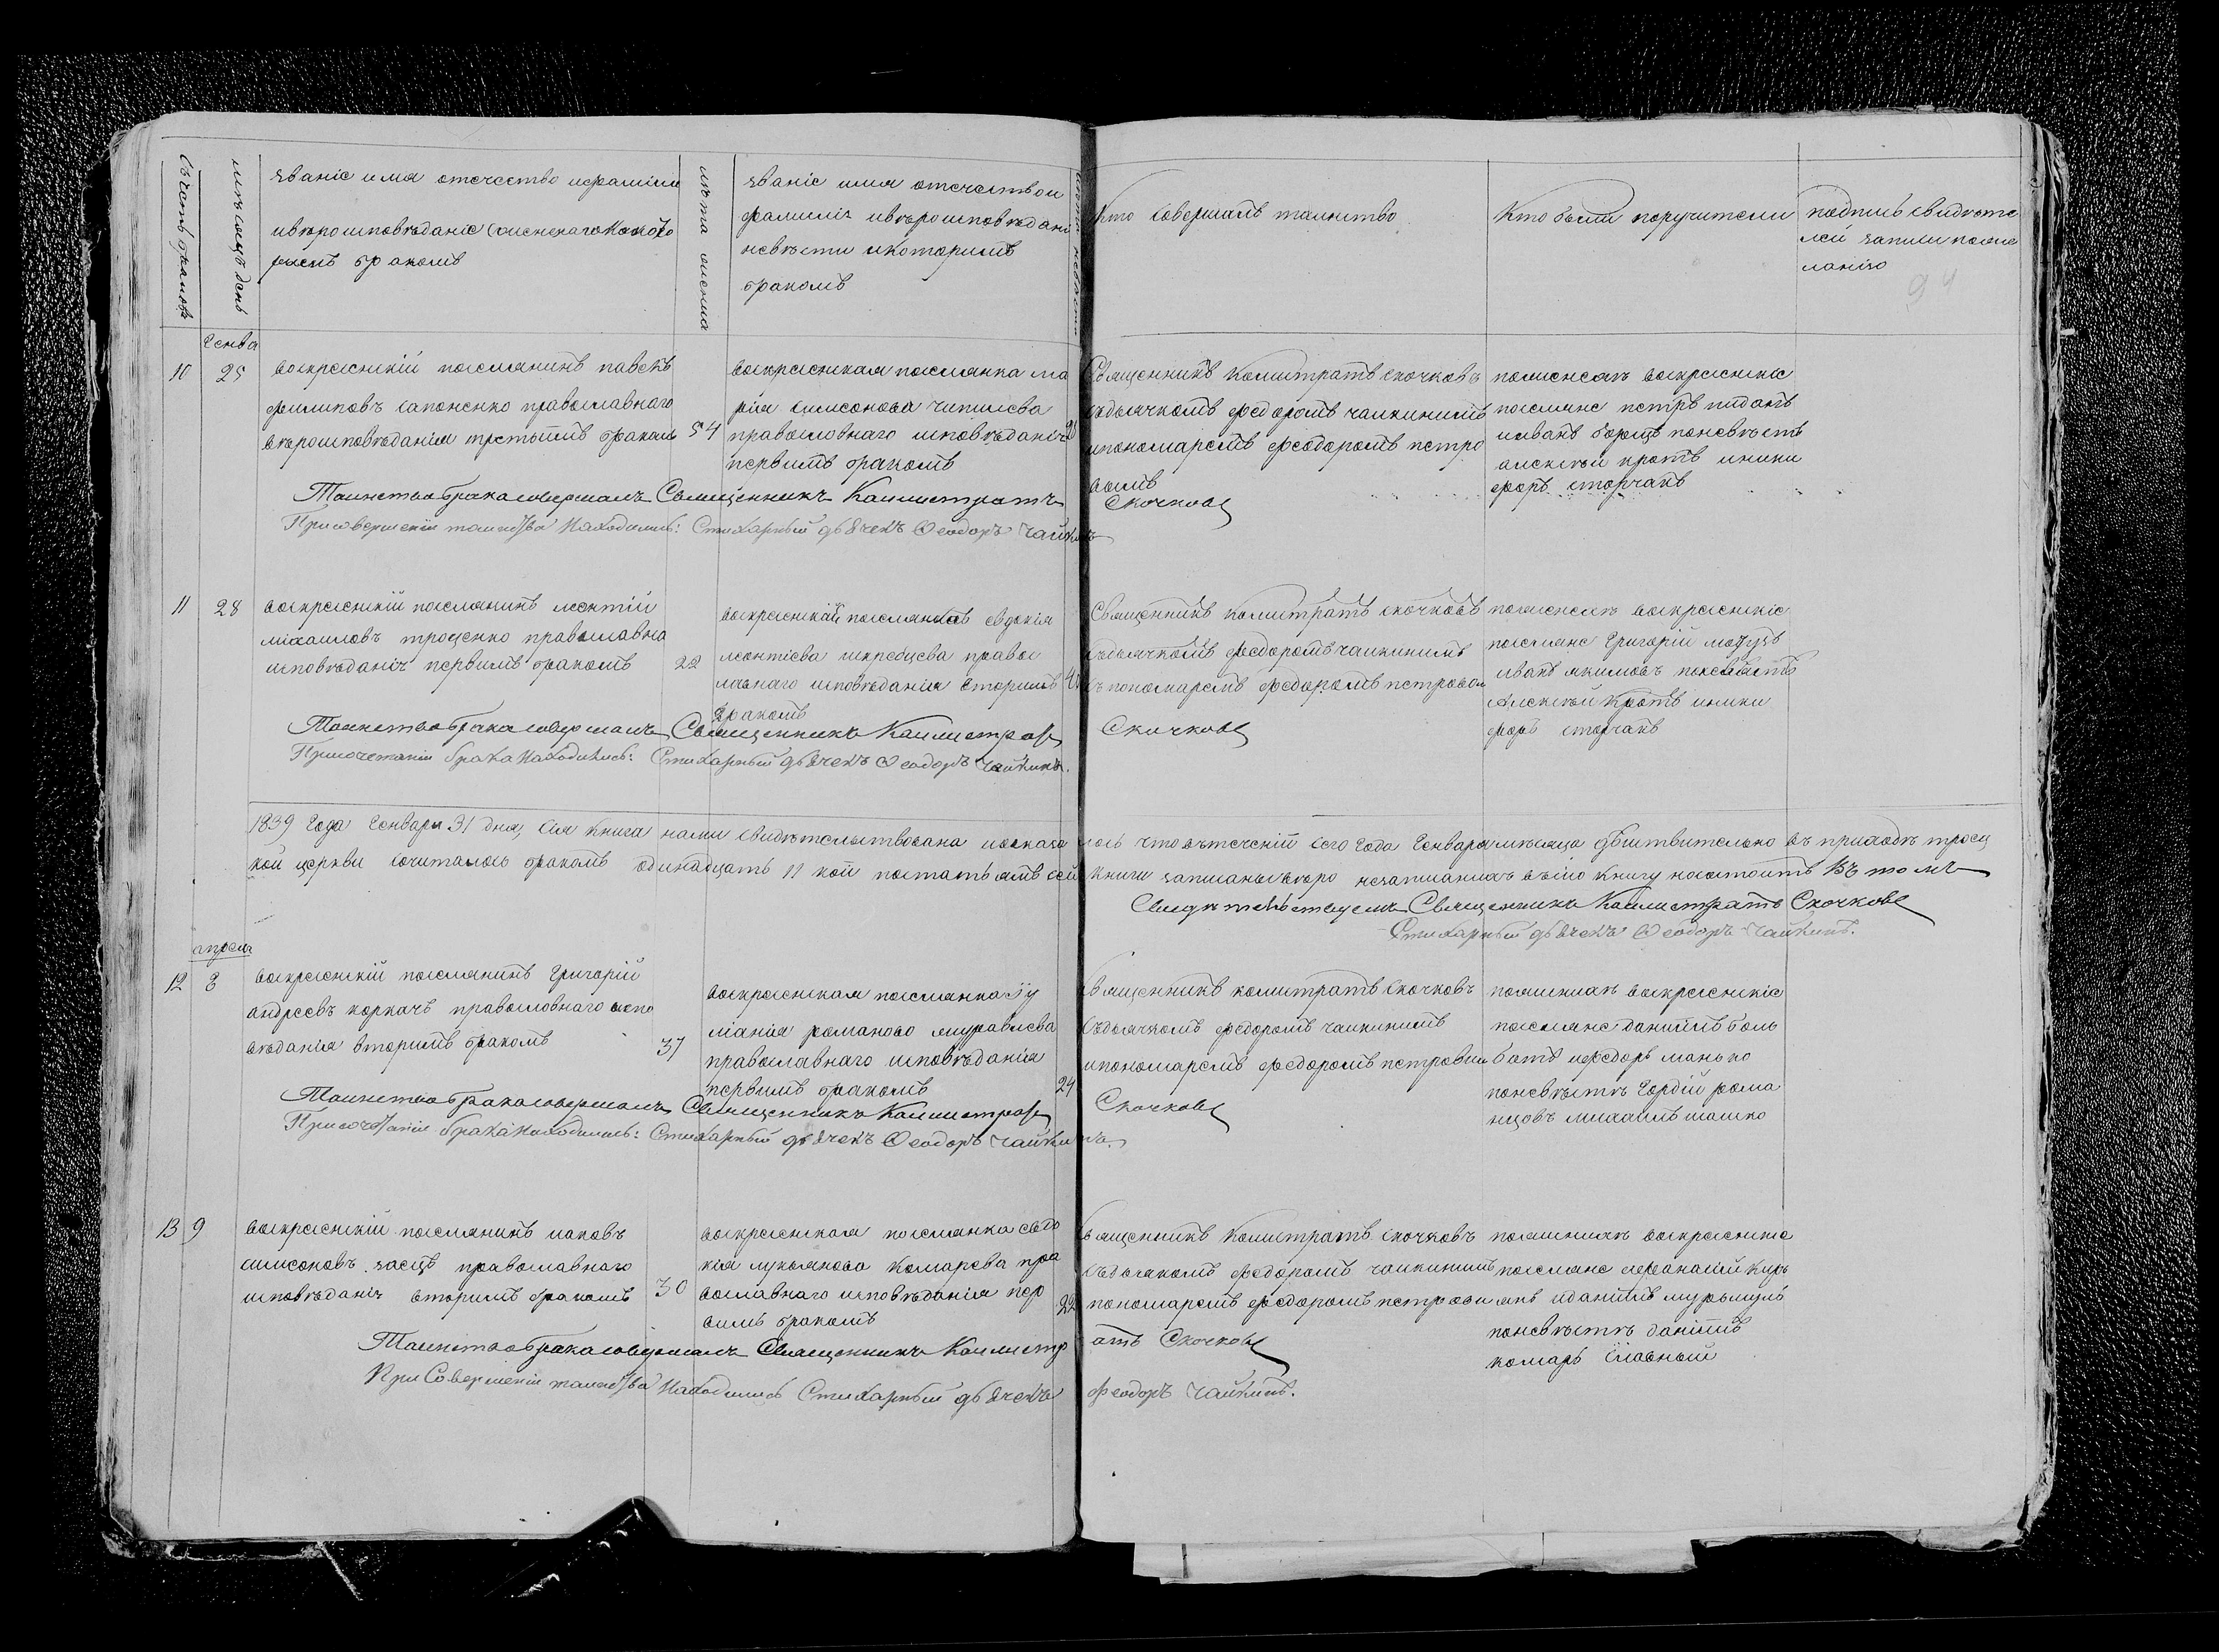 званіе имя отечество ифамилия
ивѣроисповѣданіе женihaго Которо
браком
лѣта жениха
званіе имя отечествои
фамиліи ивѣроисповѣдани
невѣсти икоторимъ
бракомъ
Кто совершалъ таинство
Кто были поручители
подпись свидѣте
лей записи пожела
ланію
94
Генва
10 25
воскресенскій поселянинъ павелъ
филиповъ сапоненко православнаго
вѣроисповѣданія третьимъ бракомъ
54
воскресенская поселянка ма
рія симеонова
православнаго исповѣданія
первимъ бракомъ
Священникъ Калистратъ скочковъ
съдьячкомъ федоромъ чалкинимъ
ипономаремъ феодоромъ петро
вымъ
пожених воскресенскіе
поселяне петръ
ииванъ борщъ поневѣстѣ
алексѣй кротъ иники
форъ сторчакъ
Таинство брака совершалъ Священникъ Каллистратъ Скочковъ
При совершеніи таинства Находились: Стихарный дьячекъ Ѳеодоръ Чайкинъ
11 28
воскресенскій поселянинъ леонтій
михаиловъ троценко православна
исповѣданія первимъ бракомъ
22
воскресенская поселянка евдокія
леонтіева шкребцева правос
лавнаго исповѣданія вторимъ
бракомъ
Священникъ Калистратъ скочковъ
съдьячкомъ федоромъ чалкинимъ
съ пономаремъ федоромъ петровом
пожених воскресенскіе
поселяне Григорій
иванъ якимовъ поневѣстѣ
Алексѣй Кротъ иники
форъ сторчакъ
Таинство брака совершалъ Священникъ Каллистратъ Скочковъ
При сочетаніи брака Находились: Стихарный дьячекъ Ѳеодоръ Чайкинъ.
1839 Года Генваря 31 дня, Сія Книга нами свидѣтельствована иоказалось чтовътеченій сего Года Генваря мѣсяца дѣйствительно въ приходѣ троец
кой церкви сочиталось бракомъ одинадцать 11 кой постатьямъ сей книги записаны вѣрно незаписаныхъ въсію Книгу несостоитъ Въ томъ
Свидѣтельствуемъ Священникъ Каллистратъ Скочковъ
Стихарный дьячекъ Ѳеодоръ Чайкинъ.
апреля
12 8
воскресенскій поселянинъ Григорій
андреевъ коркачъ православного испо
вѣданія вторимъ бракомъ
37
воскресенская поселянка Іу
ліанія романово муравлева
православнаго исповѣданія
первимъ бракомъ
24
Священникъ калистратъ скочковъ
съдьячкомъ федоромъ чалкинимъ
ипономаремъ федоромъ петровим
пожених воскресенскіе
поселяне даниилъ боль
батъ ифедоръ манько
поневѣстѣ Гордій рома
нцовъ михаилъ машко
Таинство брака совершалъ Священникъ Каллистратъ Скочковъ
При сочетаніи брака Находились: Стихарный дьячекъ Ѳеодоръ Чайкинъ.
13 9
воскресенскій поселянинъ иаковъ
симеоновъ заецъ православнаго
исповѣданія вторимъ бракомъ
30
воскресенская поселянка евдо
кія лукьянова комарева пра
вославнаго исповѣданія пер
вимъ бракомъ
22
Священникъ Калистратъ скочковъ
съдьячкомъ федоромъ чалкинимъ
пономаремъ федоромъ петровим
пожених воскресенские
поселяне афанасій кирь
янъ иданиилъ
поневѣстѣ даніилъ
комаръ главный
Таинство брака совершалъ Священникъ Каллистратъ Скочковъ
При Совершеніи таинства Находились Стихарный дьячекъ Феодоръ Чайкинъ.